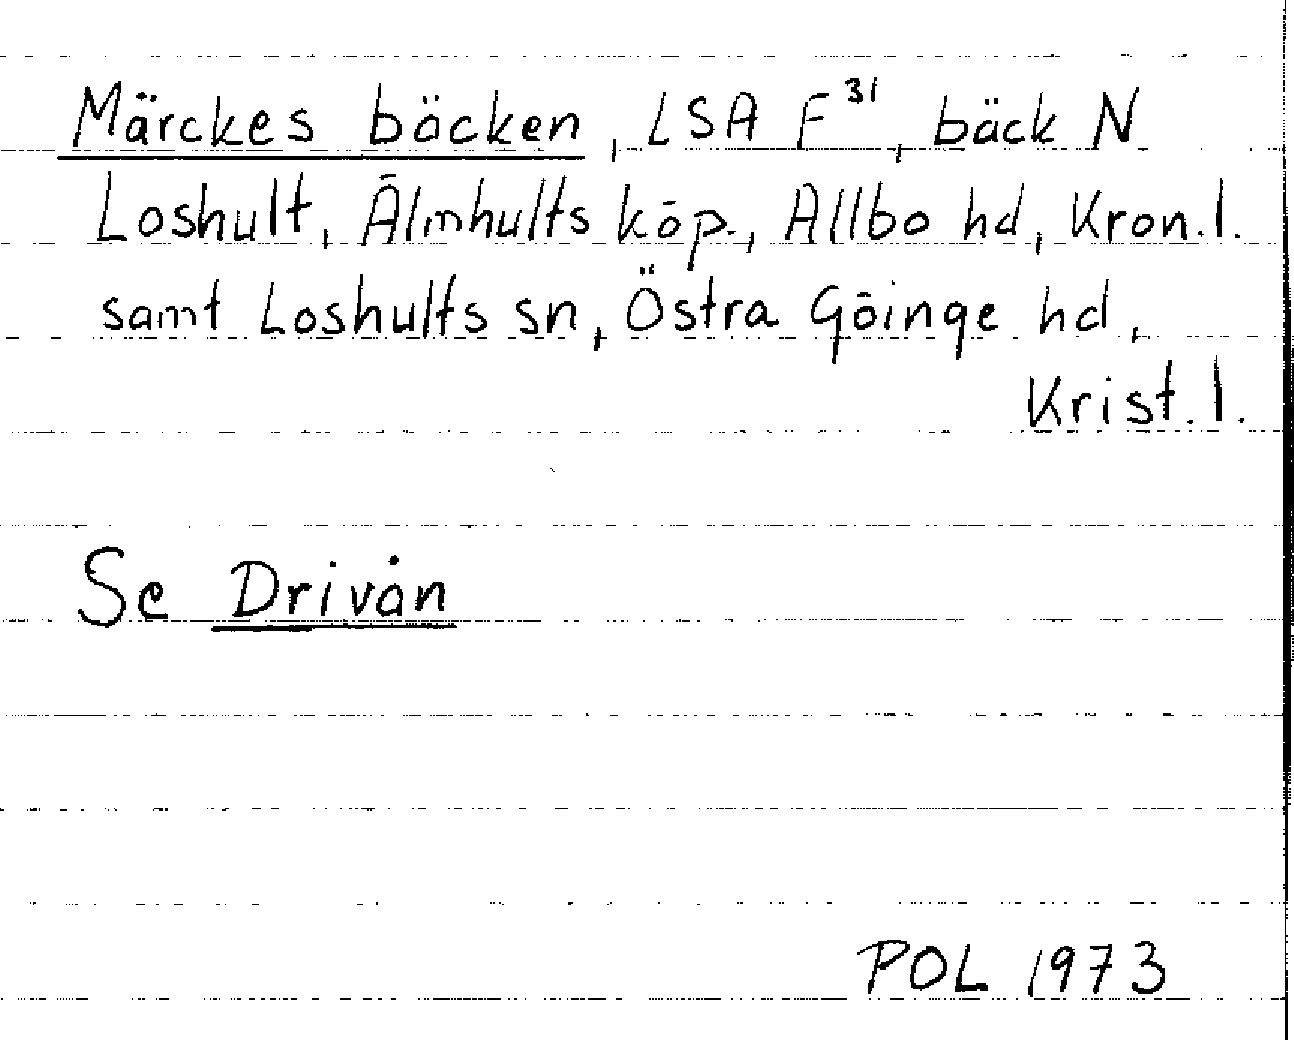 Märckes bäcken, LSA F³¹, bäck N
Loshult, Älmhults köp., Allbo hd, Kron.l.
samt Loshults sn, Östra Göinge hd,
Krist.l.
Se Drivån
POL 1973